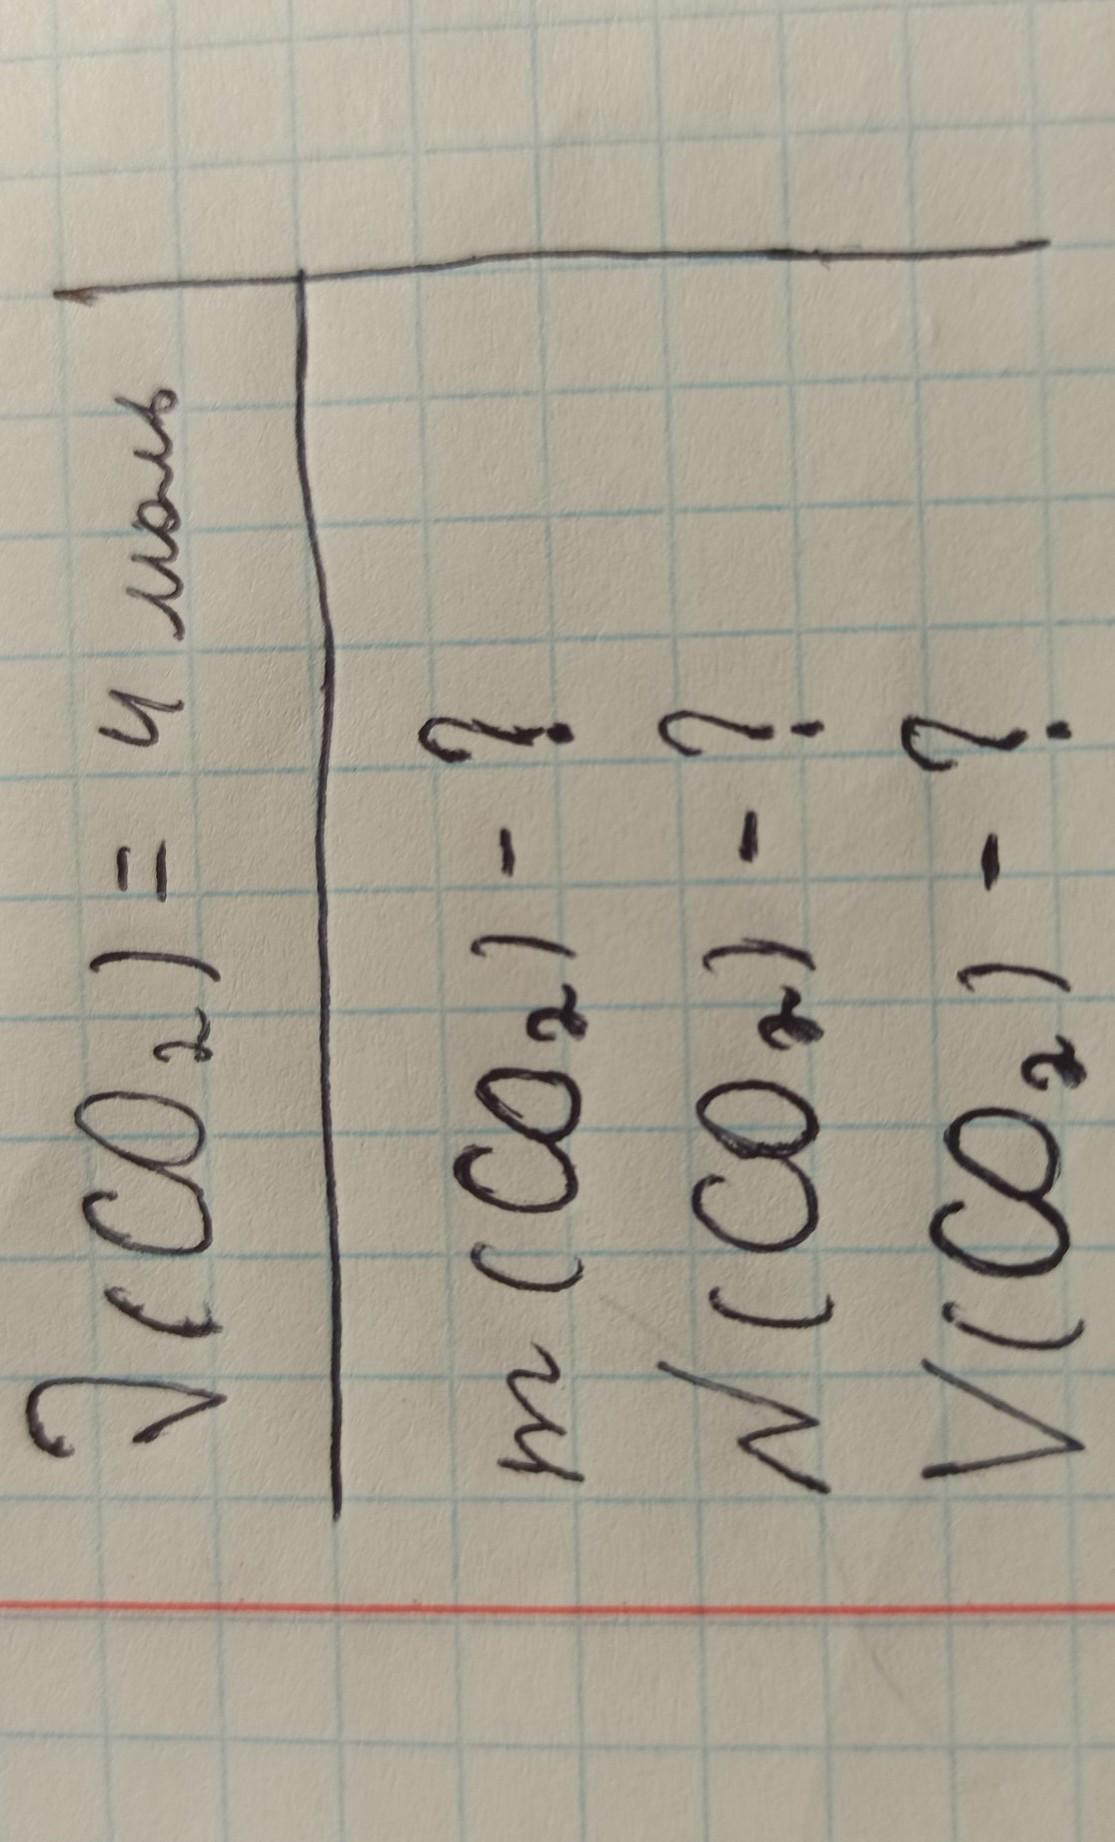 ν(CO₂) = 4 моль
m(CO₂) - ?
N(CO₂) - ?
V(CO₂) - ?